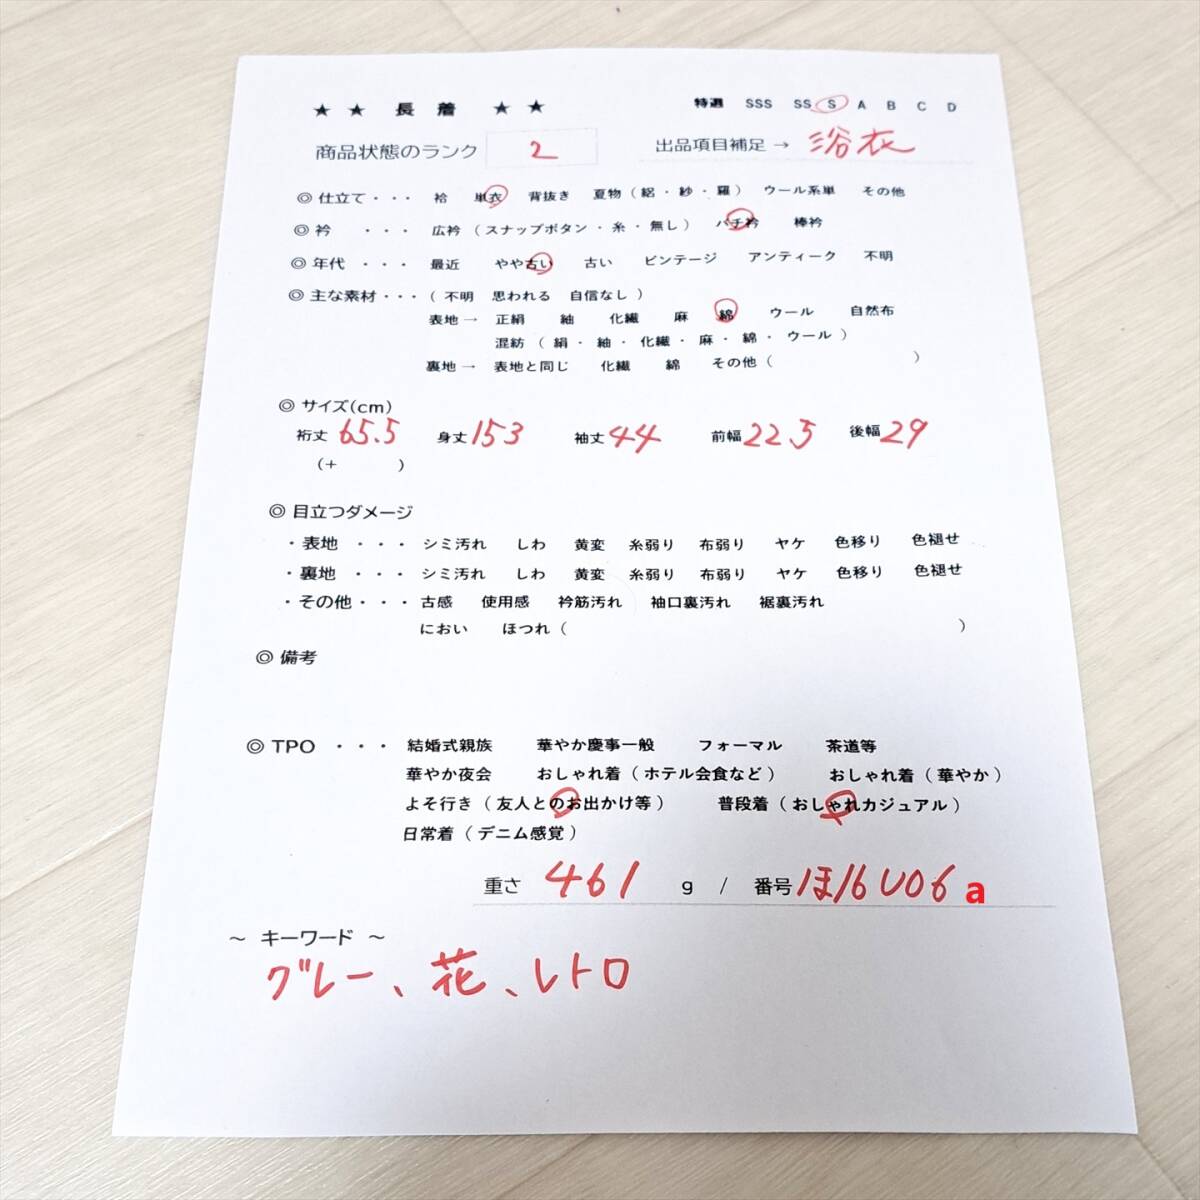 ★ ★ 長 着 ★ ★ 特選 SSS SS S A B C D
商品状態のランク 2 出品項目補足→ 浴衣
◎ 仕立て・・・ 袷 単衣 背抜き 夏物（絽・紗・羅） ウール系単 その他
◎ 衿 ・・・ 広衿（スナップボタン・糸・無し） バチ衿 棒衿
◎ 年代 ・・・ 最近 やや古い 古い ビンテージ アンティーク 不明
◎ 主な素材・・・（不明 思われる 自信なし）
表地→ 正絹 紬 化繊 麻 綿 ウール 自然布
混紡（絹・紬・化繊・麻・綿・ウール）
裏地→ 表地と同じ 化繊 綿 その他（ ）
◎ サイズ(cm)
裄丈 65.5 身丈 153 袖丈 44 前幅 22.5 後幅 29
（+ ）
◎ 目立つダメージ
・表地 ・・・ シミ汚れ しわ 黄変 糸弱り 布弱り ヤケ 色移り 色褪せ
・裏地 ・・・ シミ汚れ しわ 黄変 糸弱り 布弱り ヤケ 色移り 色褪せ
・その他・・・ 古感 使用感 衿筋汚れ 袖口裏汚れ 裾裏汚れ
におい ほつれ（ ）
◎ 備考
◎ TPO ・・・ 結婚式親族 華やか慶事一般 フォーマル 茶道等
華やか夜会 おしゃれ着（ホテル会食など） おしゃれ着（華やか）
よそ行き（友人とのお出かけ等） 普段着（おしゃれカジュアル）
日常着（デニム感覚）
重さ 461 g / 番号 ほ16U06 a
～ キーワード ～
グレー、花、レトロ